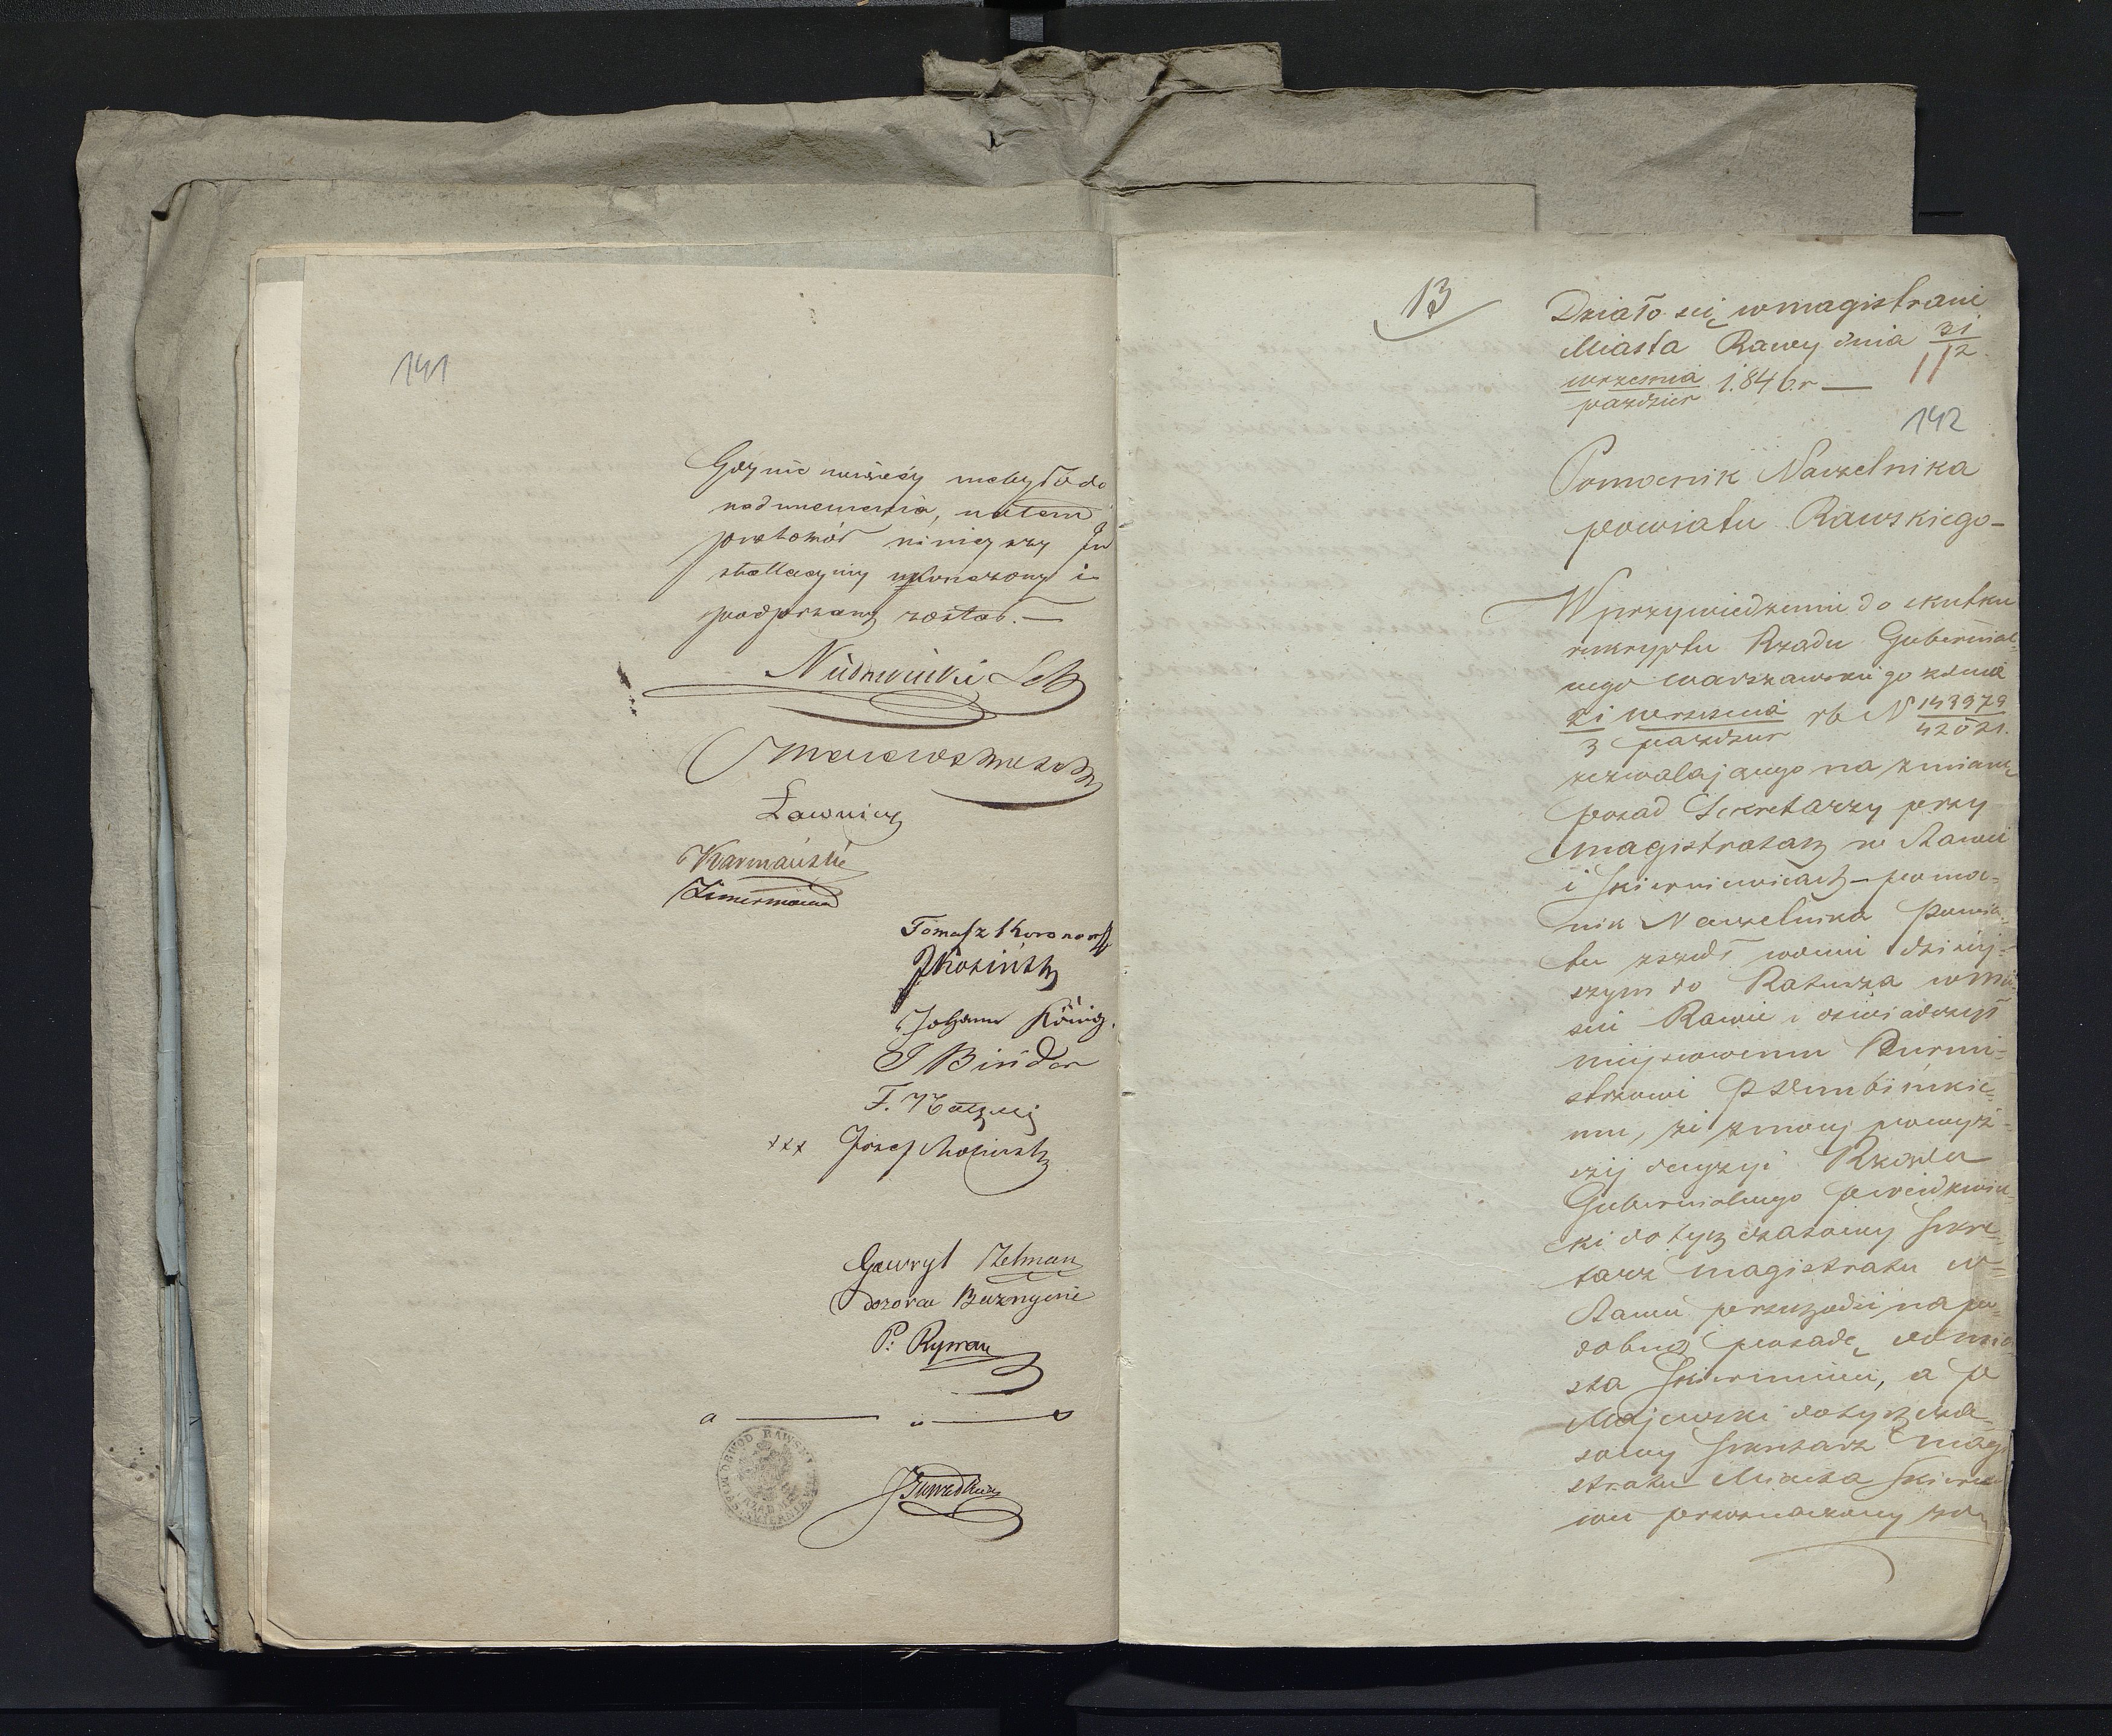 141
Gdy nic więcéj niebyło do
nadmienienia, zatem
protokół niniejszy In
stallacyjny ukończony i
podpisany został. —
Ławnicy
Karmański
Zimermann
Tomasz
JKosiński
Johann König.
J Binder
F.
xxx Józef
Gawryl Zelman
dozorca Bużnyczni
P: Ryman
OBWOD RAWSKI
13
Działo się w magistracie
Miasta Rawy dnia 21/2
września/paździer 1846 r —
142
Pomocnik Naczelnika
powiatu Rawskiego —
W przywiedzeniu do skutku
reskryptu Rządu Gubernial-
nego Warszawskiego z dnia
21 września/3 paździer rb N
zezwalającego na zmianę
posad Sekretarzy przy
magistratach w Rawie
i Skierniewicach — pomoc-
nik Naczelnika Powia-
tu zszedł w dniu dzisiej-
szym do Ratusza w mie-
ście Rawie i oświadczył
miejscowemu Burmi-
strzowi
mu, że z mocy powyż-
széj decyzyi Rządu
Gubernialnego
ki dotychczasowy Sekre-
tarz magistratu w
Rawie przechodzi na po-
dobną posadę do mia-
sta Skierniewic, a P
Majewski dotychcza-
sowy Sekretarz magi
stratu Miasta Skiernie
wic przeznaczony zo